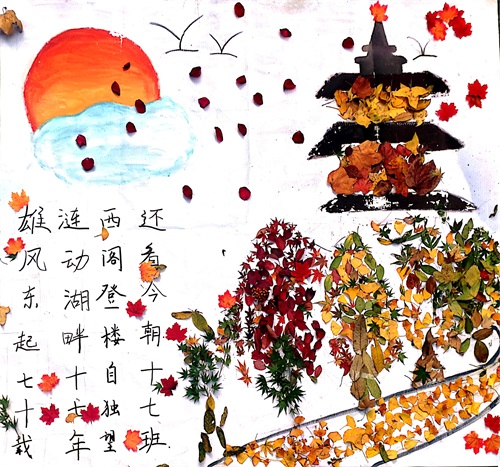 雄风东起七十载
涟动湖畔十七年
西阁登楼自独望
还看今朝十七班